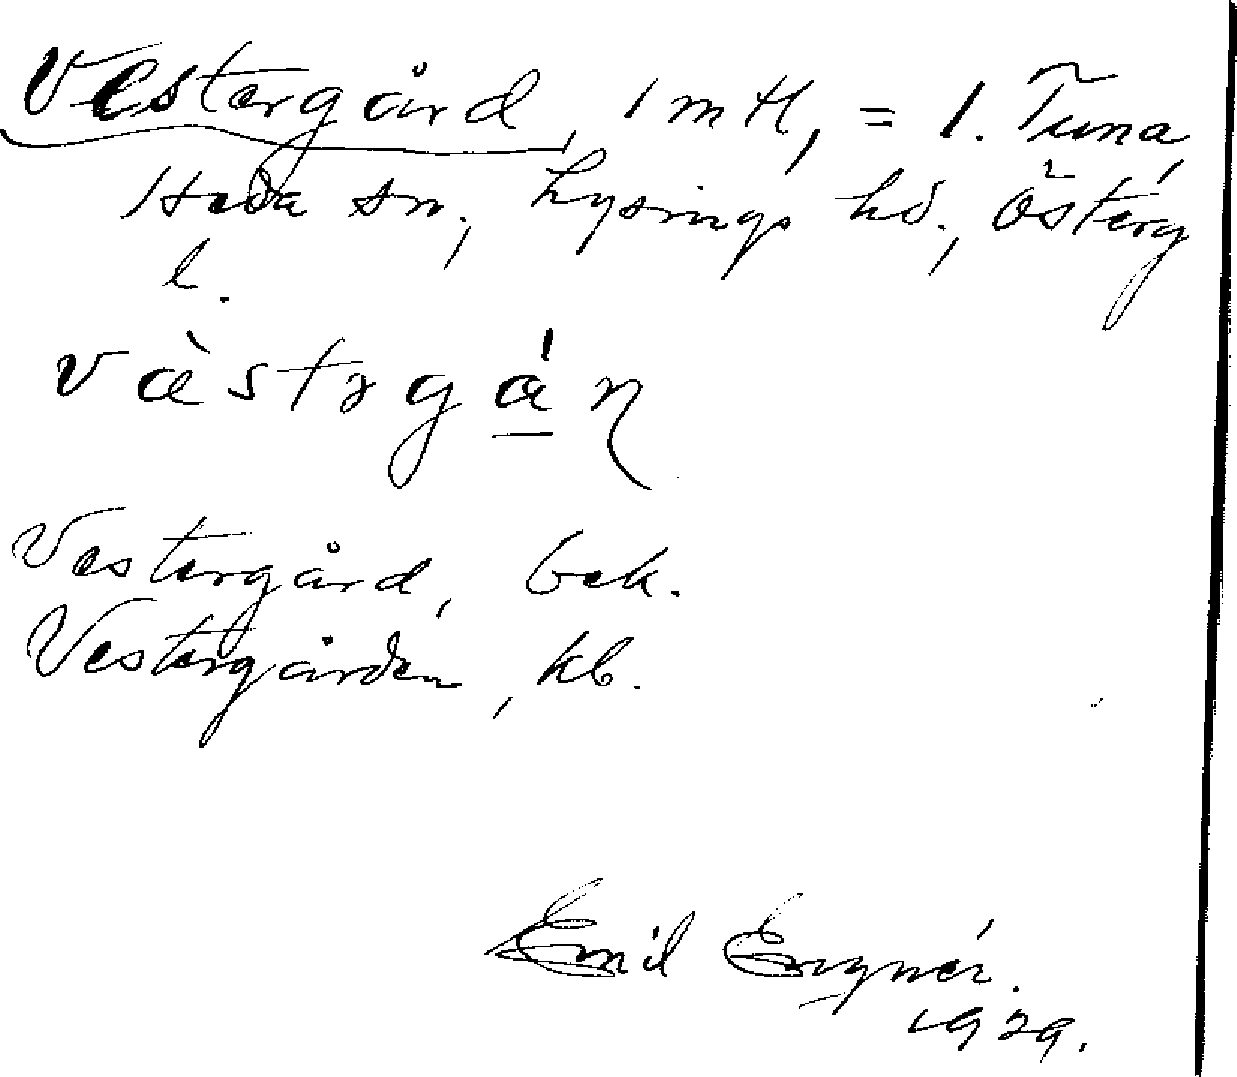 Vestergård, 1 mtl, = 1. Tuna,
Heda sn., Lysings hd., Österg
l.
vȁstrgá̱ṇ
Vestergård, bek.
Vestergården, kb.
Emil
1929.